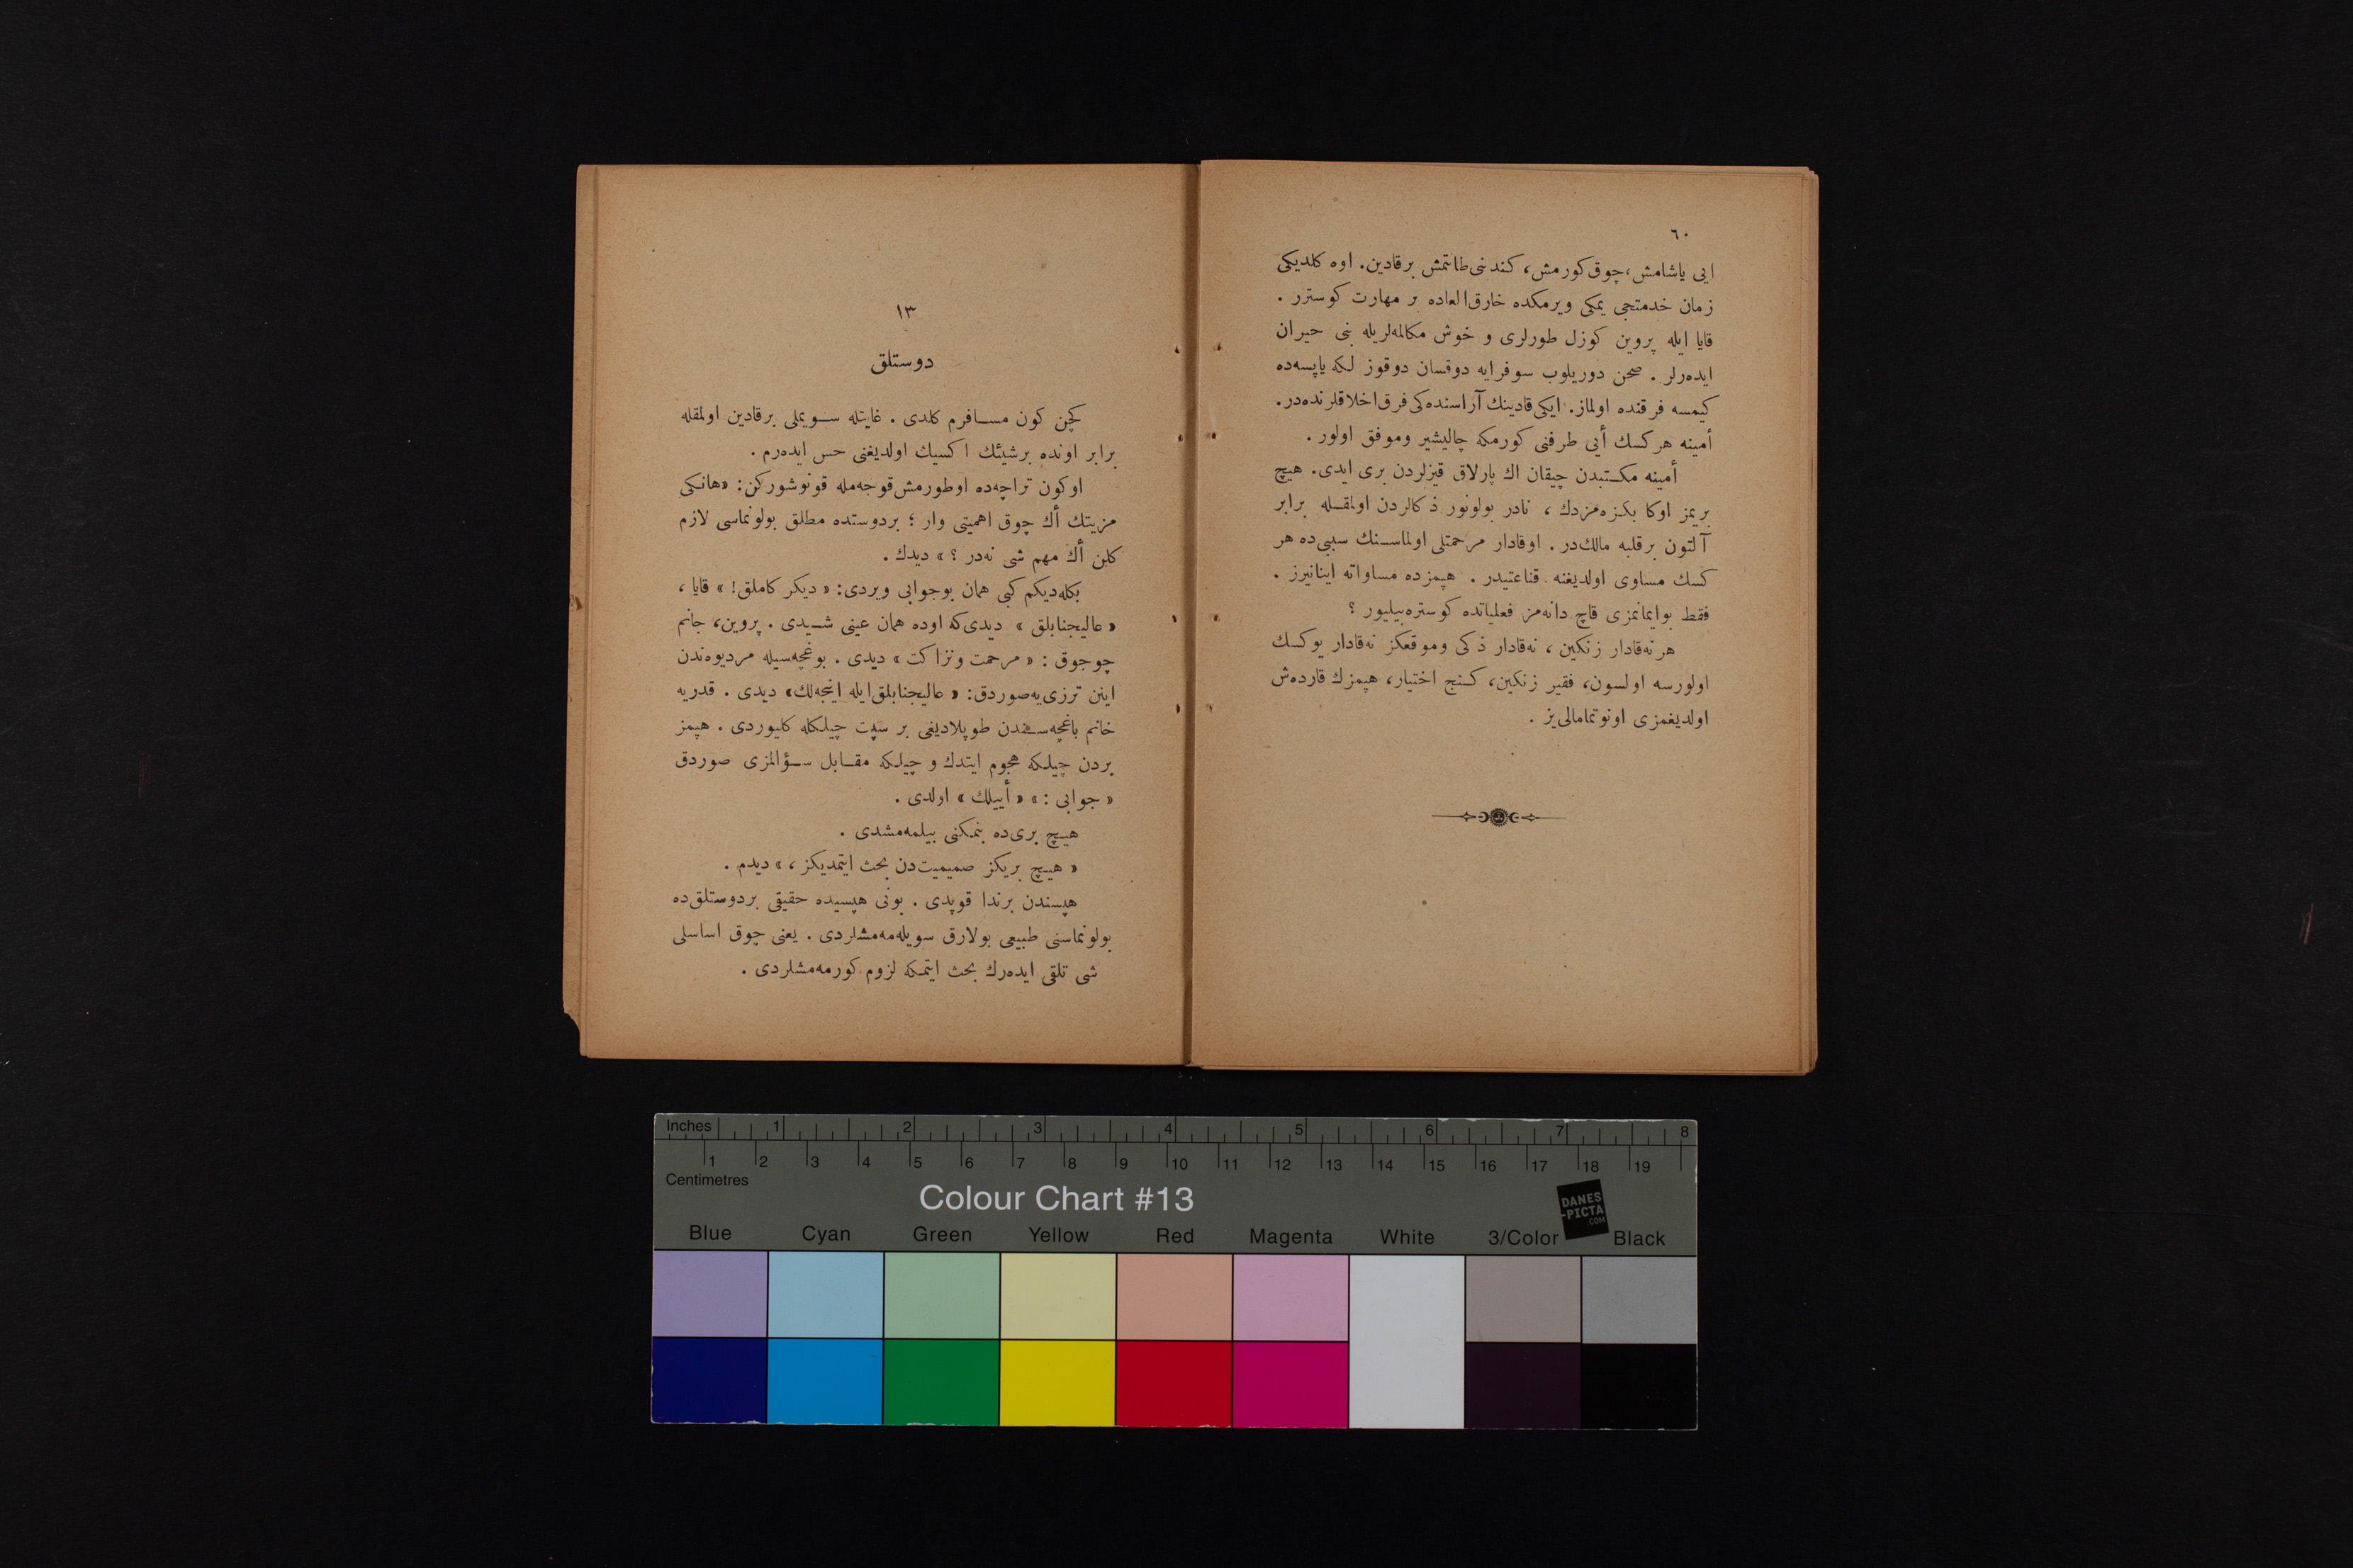 ٦٠
ایی یاشامش، چوق كورمش، كندینی طاتمش برقادین. اوه كلدیكی
زمان خدمتجی یمكی ویرمكده خارق‌العاده بر مهارت كوسترر .
قایا ایله پروین كوزل طورلری و خوش مكالمه‌لریله بنی حیران
ایده‌رلر . صحن دوریلوب سوفرایه دوقسان دوقوز لكه یاپسه‌ده
كیمسه فرقنده اولماز. ایكی قادینك آراسنده‌كی فرق اخلاقلرنده‌در.
أمینه هركسك أیی طرفنی كورمكه چالیشیر وموفق اولور .
أمینه مكـتبدن چیقان اك پارلاق قیزلردن بری ایدی. هیچ
بریمز اوكا بكزه‌مزدك ، نادر بولونور ذكالردن اولمقـله برابر
آلتون برقلبه مالك‌در . اوقادار مرحمتلی اولماسـنك سببی‌ده هر
كسك مساوی اولدیغنه قناعتیدر . هپمزده مساواته اینانیرز .
فقط بوایمانمزی قاچ دانه‌مز فعلیاتده كوستره‌بیلیور ؟
هر نه‌قادار زنكین ، نه‌قادار ذكی وموقعكز نه‌قادار یوكسك
اولورسه اولسون، فقیر زنكین، كـنج اختیار، هپمزك قارده‌ش
اولدیغمزی اونوتمامالی‌یز .
١٣
دوستلق
كچن كون مسـافرم كلدی . غایتله سـویملی برقادین اولمقله
برابر اونده برشیئك اكسیك اولدیغنی حس ایده‌رم .
اوكون تراچه‌ده اوطورمش قوجه‌مله قونوشوركن: «هانـكی
مزیتك أك چوق اهمیتی وار ؛ بردوستده مطلق بولونماسی لازم
كلن أك مهم شی نه‌در ؟ » دیدك .
بكله‌دیكم كبی همان بوجوابی ویردی: « دیكر كاملق! » قایا ،
« عالیجنابلق » دیدی‌كه اوده همان عینی شـیدی . پروین، جانم
چوجوق : « مرحمت ونزاكت » دیدی . بوغچه‌سیله مردیوه‌ندن
اینن ترزی‌یه‌صوردق: « عالیجنابلق‌ایله اینجه‌لك» دیدی . قدریه
خانم باغچه‌سـندن طوپلادیغی بر سپت چیلكله كلیوردی . هپمز
بردن چیلكه هجوم ایتدك و چیلكه مقـابل سـؤالمزی صوردق
« جوابی : » « أییلك » اولدی .
هیـچ بری‌ده بنمكنی بیلمه‌مشدی .
« هیـچ بریكز صمیمیت‌دن بحث ایتمدیكز ، » دیدم .
هپسندن برندا قوپدی . بونی هپسیده حقیقی بردوستلق‌ده
بولونماسنی طبیعی بولارق سویله‌مه‌مشلردی . یعنی چوق اساسلی
شی تلقی ایده‌رك بحث ایتمـكه لزوم كورمه‌مشلردی .
Inches 1 2 3 4 5 6 7 8
1 2 3 4 5 6 7 8 9 10 11 12 13 14 15 16 17 18 19
Centimetres
Colour Chart #13
DANES
-PICTA
.COM
Blue Cyan Green Yellow Red Magenta White 3/Color Black